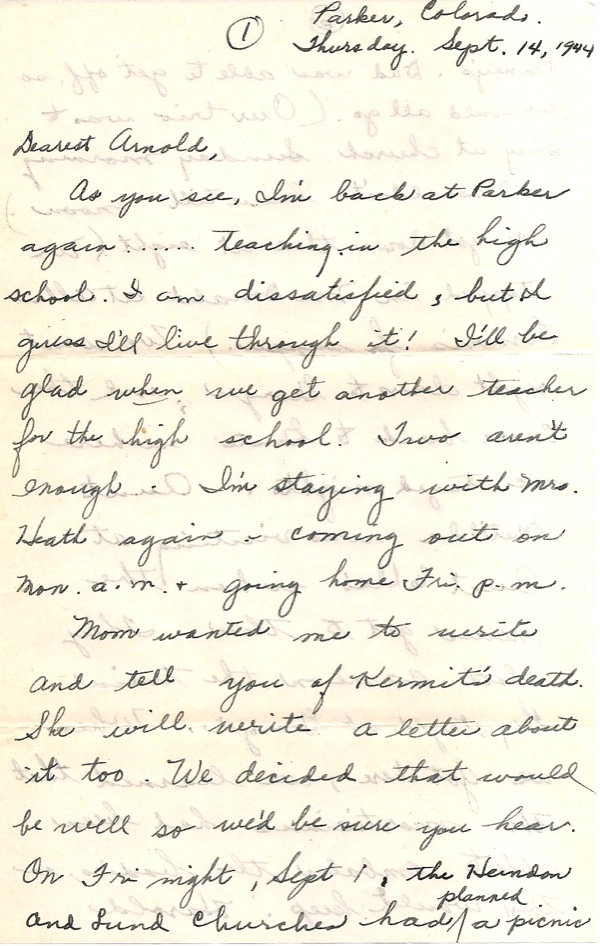 ①
Parker, Colorado.
Thursday. Sept. 14, 1944
Dearest Arnold,
As you see, I'm back at Parker
again...... teaching in the high
school. I am dissatisfied, but I
guess I'll live through it! I'll be
glad when we get another teacher
for the high school. Two aren't
enough. I'm staying with Mrs.
Heath again - coming out on
Mon. a.m. + going home Fri. p.m.
Mom wanted me to write
and tell you of Kermit's death.
She will write a letter about
it too. We decided that would
be well so we'd be sure you hear.
On Fri night, Sept 1, the
planned
and Lund Churches had / a picnic